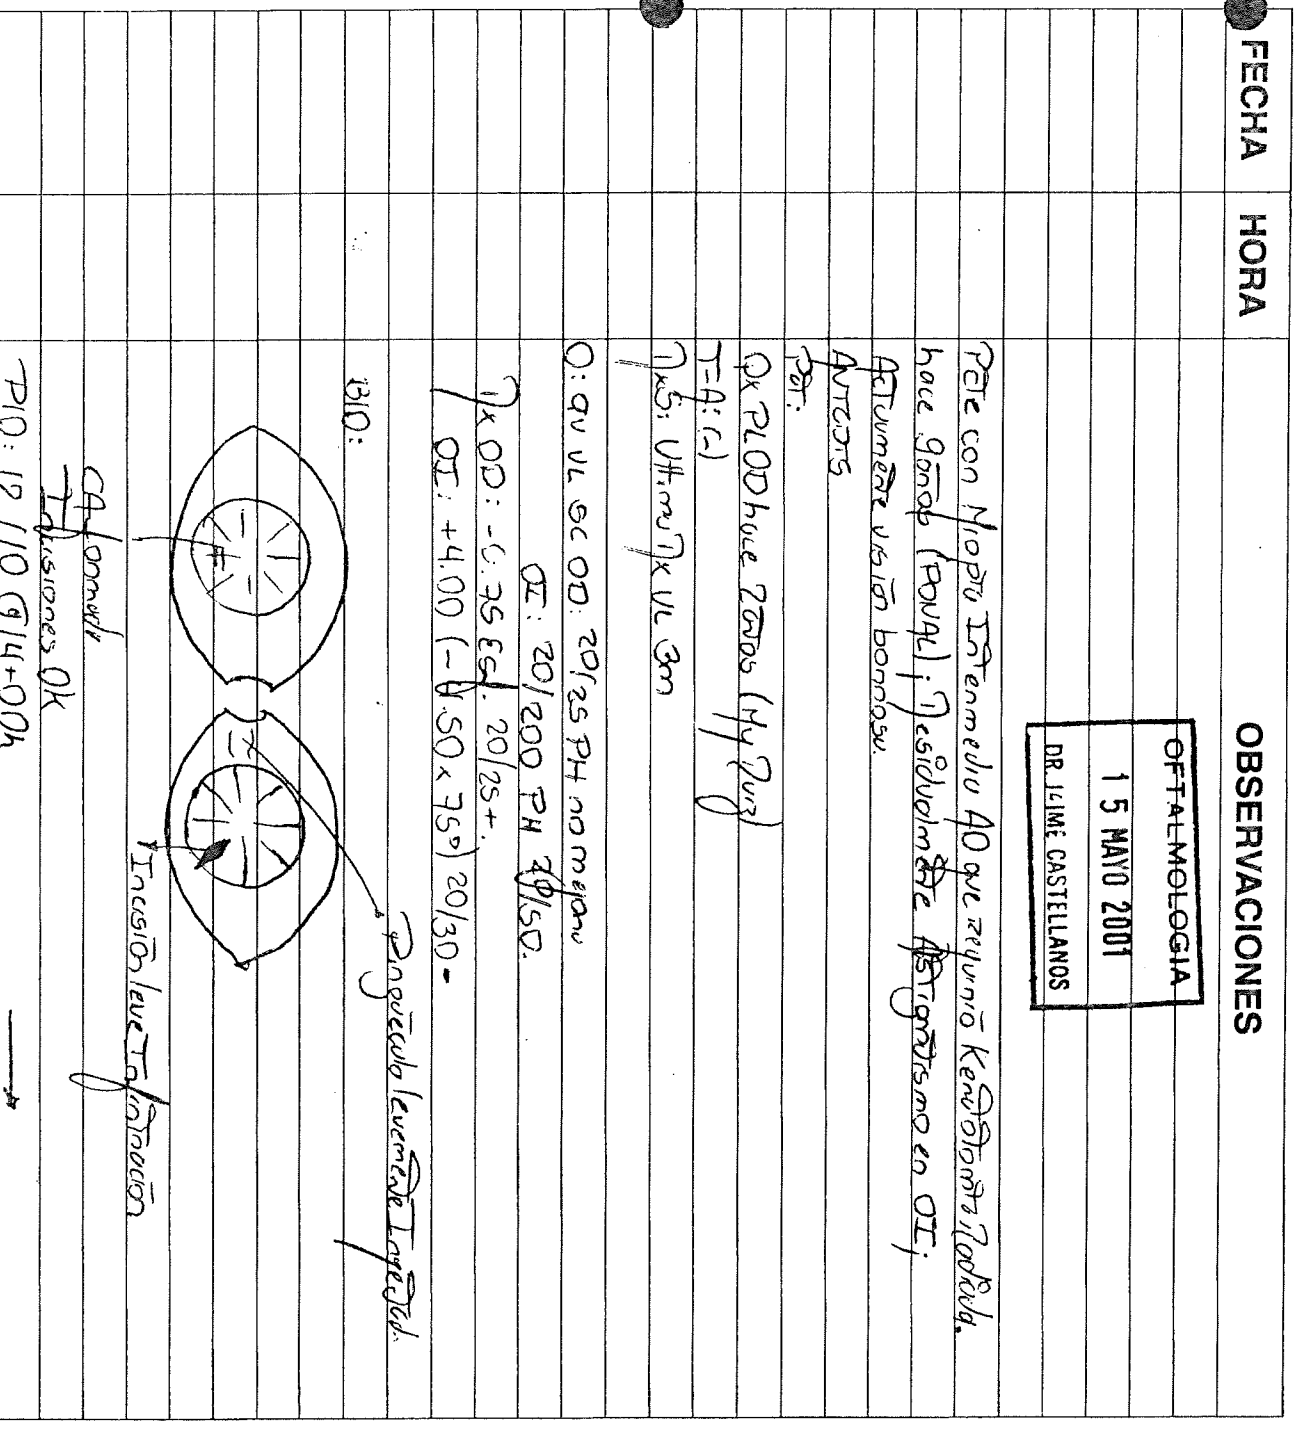 FECHA HORA OBSERVACIONES
OFTALMOLOGIA
15 MAYO 2001
DR. JAIME CASTELLANOS
Pcte con Miopia Intermedia AO que requirió Keratotomía Radiada.
hace 9años (PONAL); Residualmente Astigmatismo en OI;
Actualmente visión borrosa.
ANTCDTS
Pat:
Qx PLOD hace 2años (My Ruiz)
T-A: (-)
RxS: Ultima Rx VL 3m
O: av VL SC OD: 20/25 PH no mejora
OI: 20/200 PH 20/50.
Rx OD: -0.75 Esf. 20/25+.
OI: +4.00 (-4.50 x 75°) 20/30-
BIO:
Pinguecula levemente Inyectad.
Incisión leve Infiltración
CA formada
Incisiones OK
PIO: 12/10 @ 14+00h